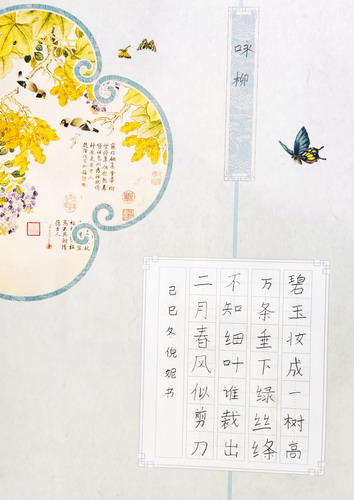 咏柳
碧玉妆成一树高
万条垂下绿丝绦
不知细叶谁裁出
二月春风似剪刀
己巳冬倪妮书